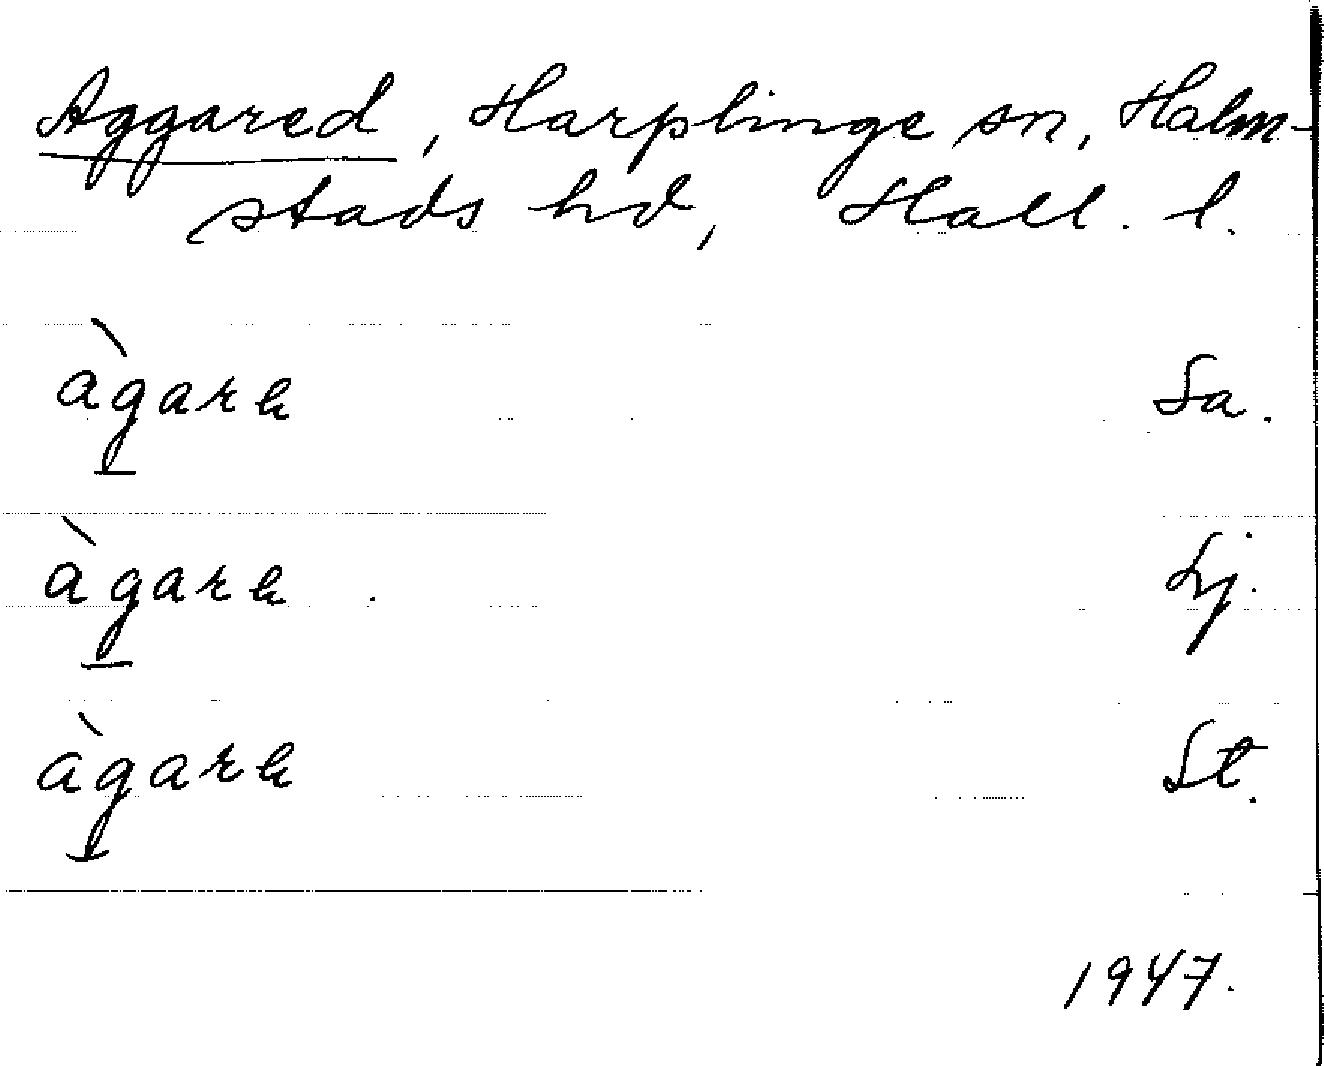 Aggared, Harplinge sn, Halm-
stads hd, Hall. l.
àgarɐ Sa.
àgarɐ Lj.
àgarɐ St.
1947.